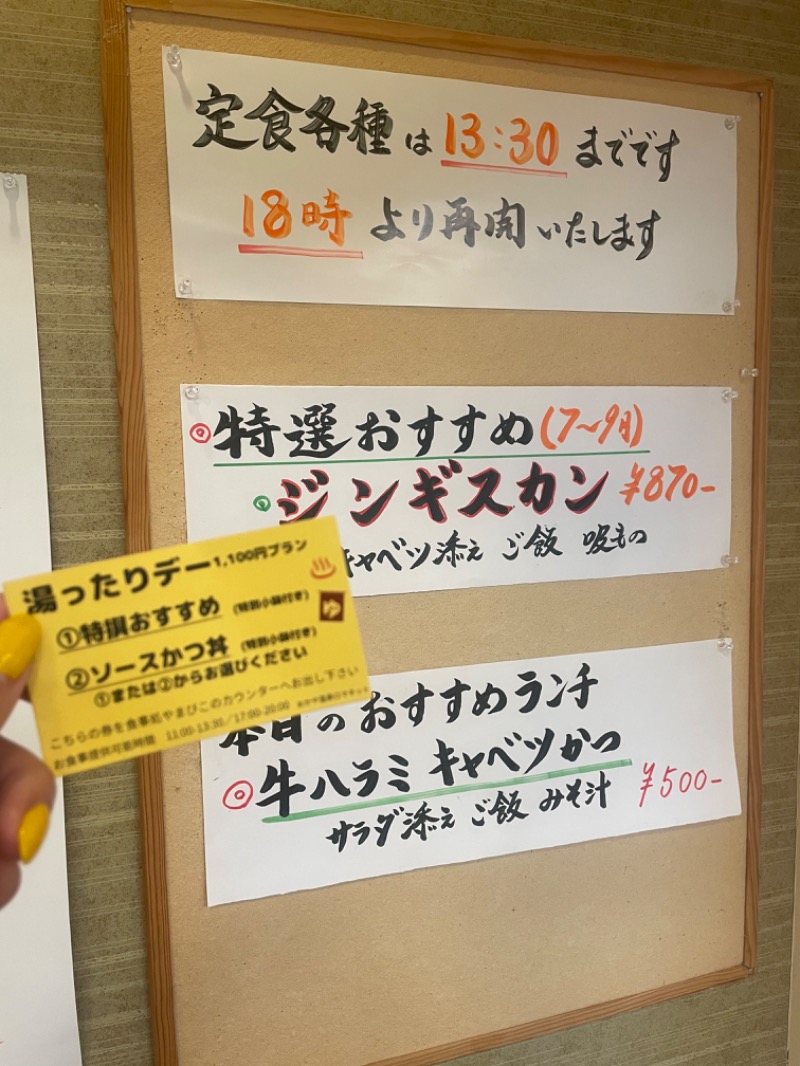 定食各種は13:30までです
18時より再開いたします
◎特選おすすめ(7〜9月)
◎ジンギスカン ¥870-
キャベツ添え ご飯 吸もの
湯ったりデー1,100円プラン
①特撰おすすめ (特別小鉢付き)
②ソースかつ丼 (特別小鉢付き)
①または②からお選びください
こちらの券を食事処やまびこのカウンターへお出し下さい
お食事提供可能時間 11:00-13:30/17:00-20:00
ゆ
本日のおすすめランチ
◎牛ハラミ キャベツかつ
サラダ添え ご飯 みそ汁 ¥500-